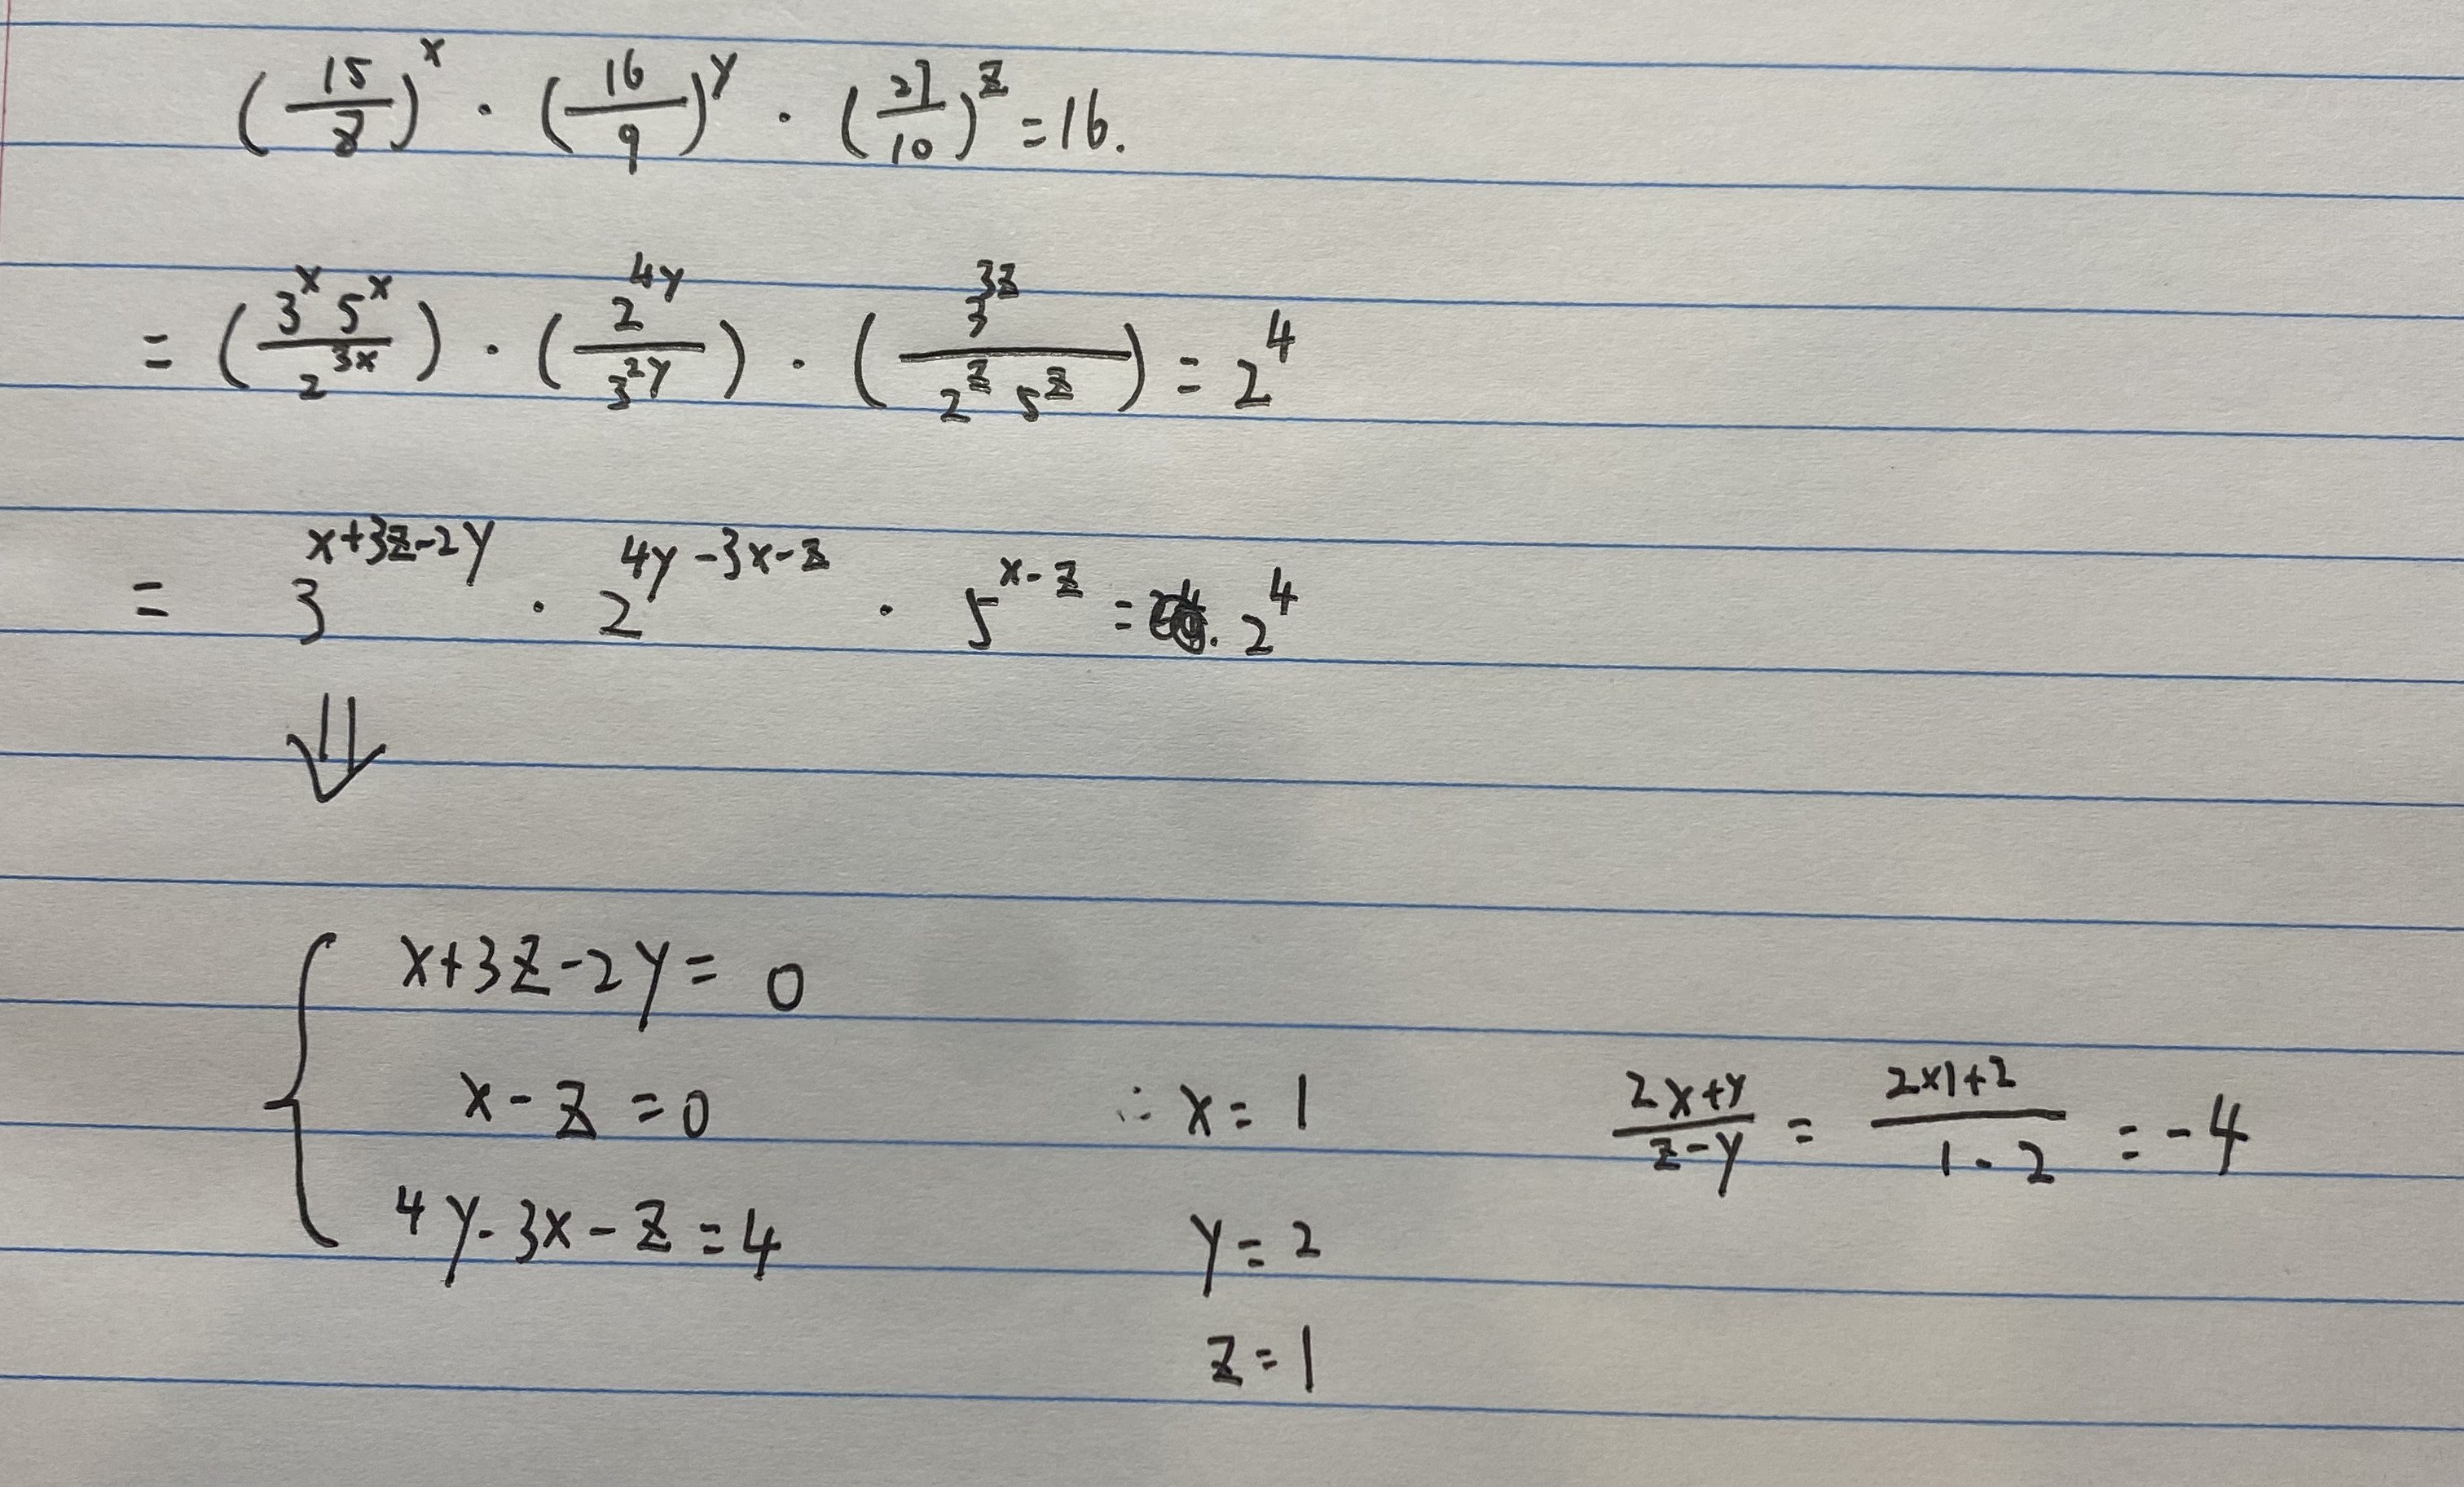 (15/8)^x · (16/9)^y · (27/10)^z = 16.
= (3^x 5^x / 2^3x) · (2^4y / 3^2y) · (3^3z / 2^z 5^z) = 2^4
= 3^x+3z-2y · 2^4y-3x-z · 5^x-z = 2^4
⇓
x+3z-2y = 0
x-z = 0
4y-3x-z = 4
∴ x = 1
y = 2
z = 1
2x+y / z-y = 2×1+2 / 1-2 = -4